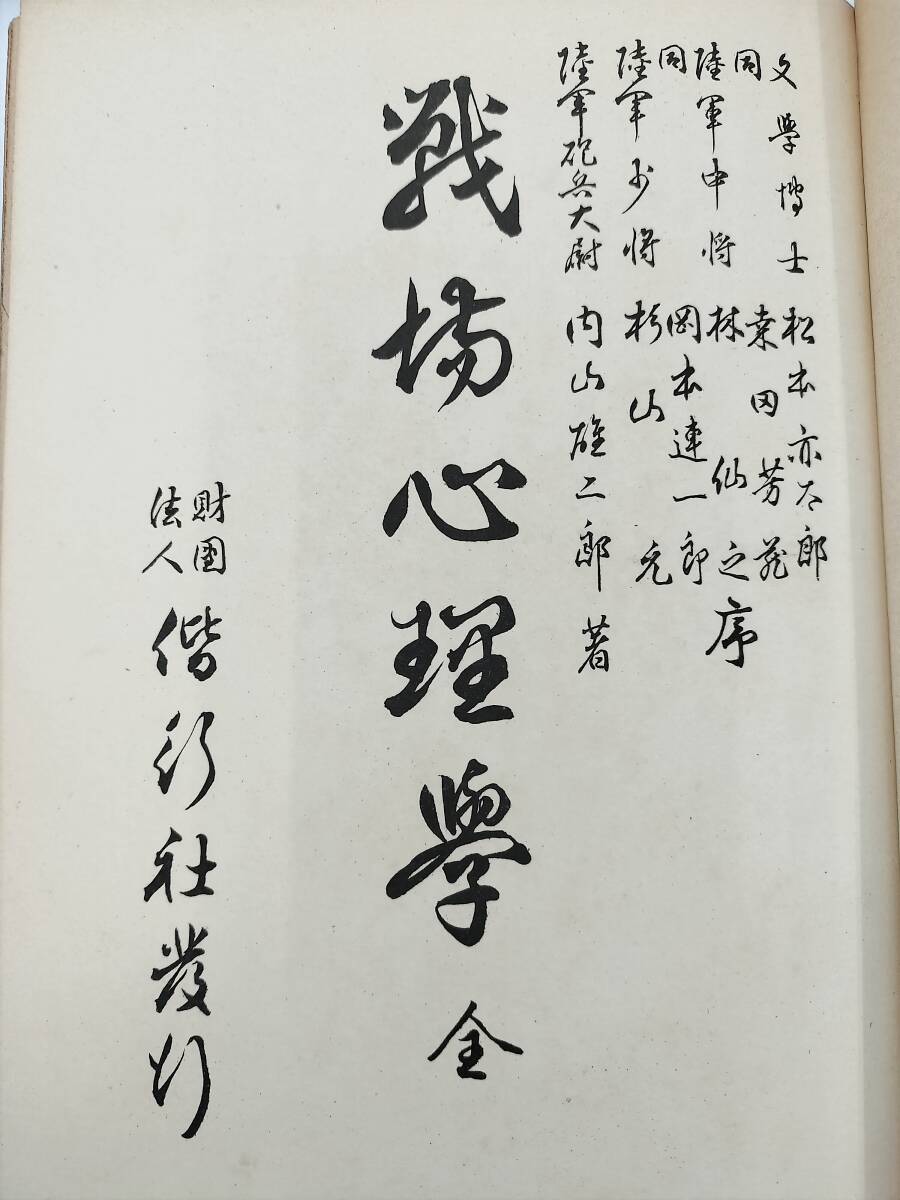 文學博士 松本亦太郎
同 桑田芳蔵
陸軍中將 林仙之
同 岡本連一郎
陸軍少將 杉山元
序
陸軍砲兵大尉 内山雄二郎 著
戰場心理學 全
財團法人 偕行社發行